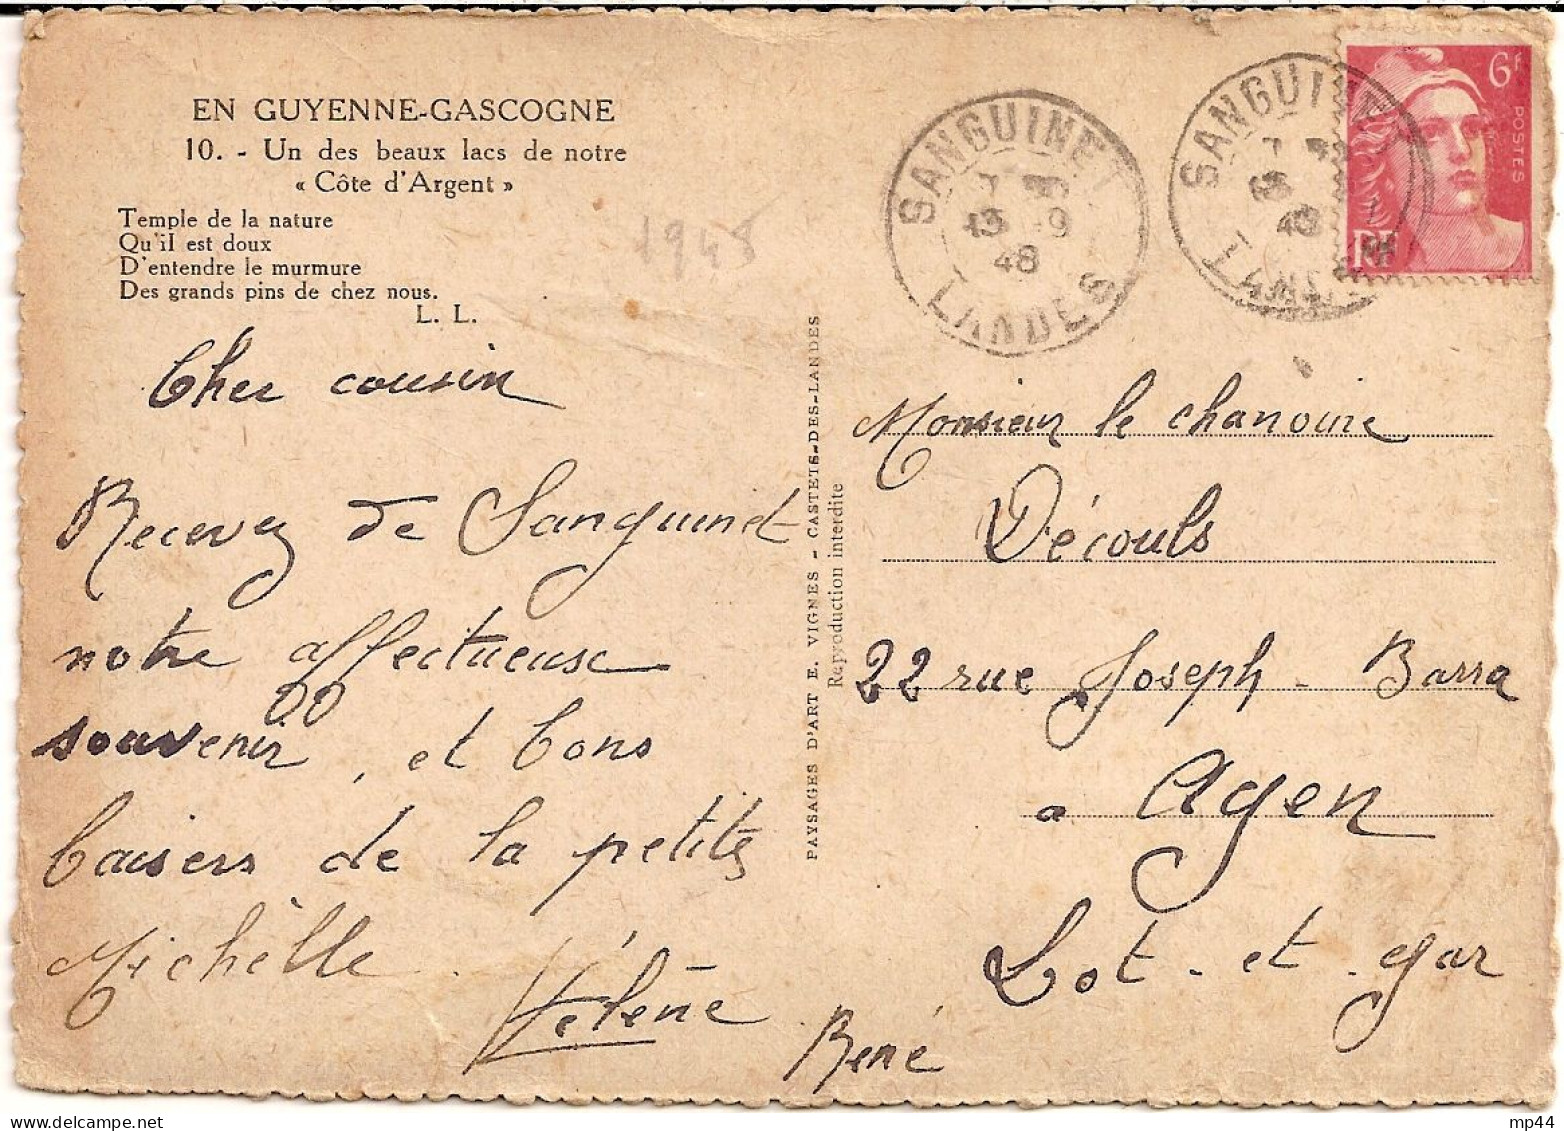 EN GUYENNE-GASCOGNE
10. - Un des beaux lacs de notre
« Côte d'Argent »
Temple de la nature
Qu'il est doux
D'entendre le murmure
Des grands pins de chez nous.
L. L.
1948
Cher cousin
Recevez de Sanguinet
notre affectueuse
souvenir, et bons
baisers de la petite
Michèlle.
Hélène
René
PAYSAGES D'ART E. VIGNES - CASTETS-DES-LANDES
Reproduction interdite
SANGUINET
13 -9
48
LANDES
SANGUINET
48
LANDES
6F
POSTES
RF
Monsieur le chanoine
Découls
22 rue Joseph - Barra
a Agen
Lot - et - gar
mp44